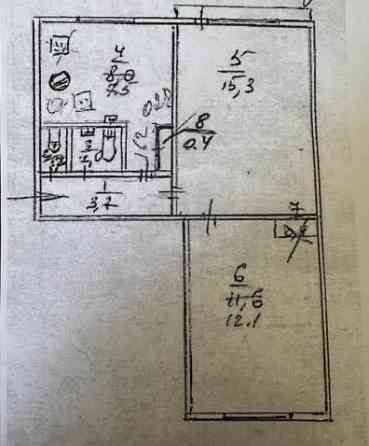 4
8,0
7,5
5
15,3
8
0.4
1
3,7
7
6
11,6
12.1